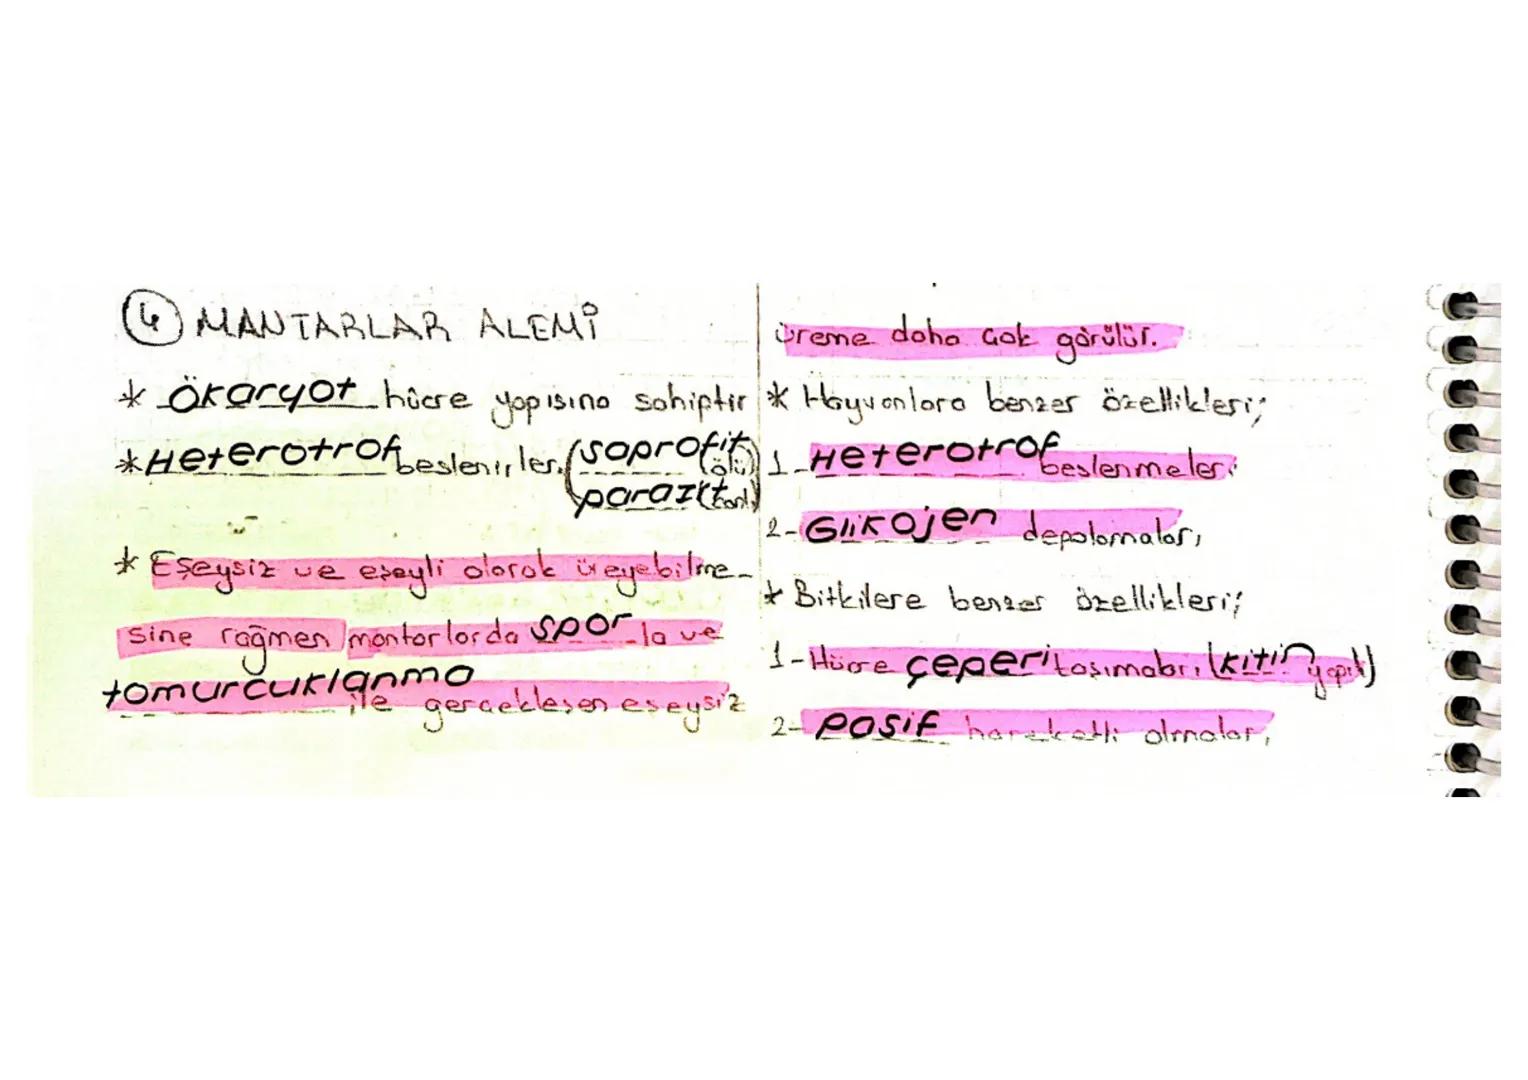 6 MANTARLAR ALEMİ
* Ökaryot hücre yapısına sahiptir
* Heterotrof beslenirler. (saprofit (ölü)
parazit canlı)
* Eşeysiz ve eşeyli olarak üreyebilme-
sine rağmen mantarlarda spor la ve
tomurcuklanma ile gerçekleşen eşeysiz
üreme daha çok görülür.
* Hayvanlara benzer özellikleri;
1- Heterotrof beslenmeleri
2- Glikojen depolamaları
* Bitkilere benzer özellikleri;
1- Hücre çeperi taşımaları (kitin yapılı)
2- pasif hareketli olmaları